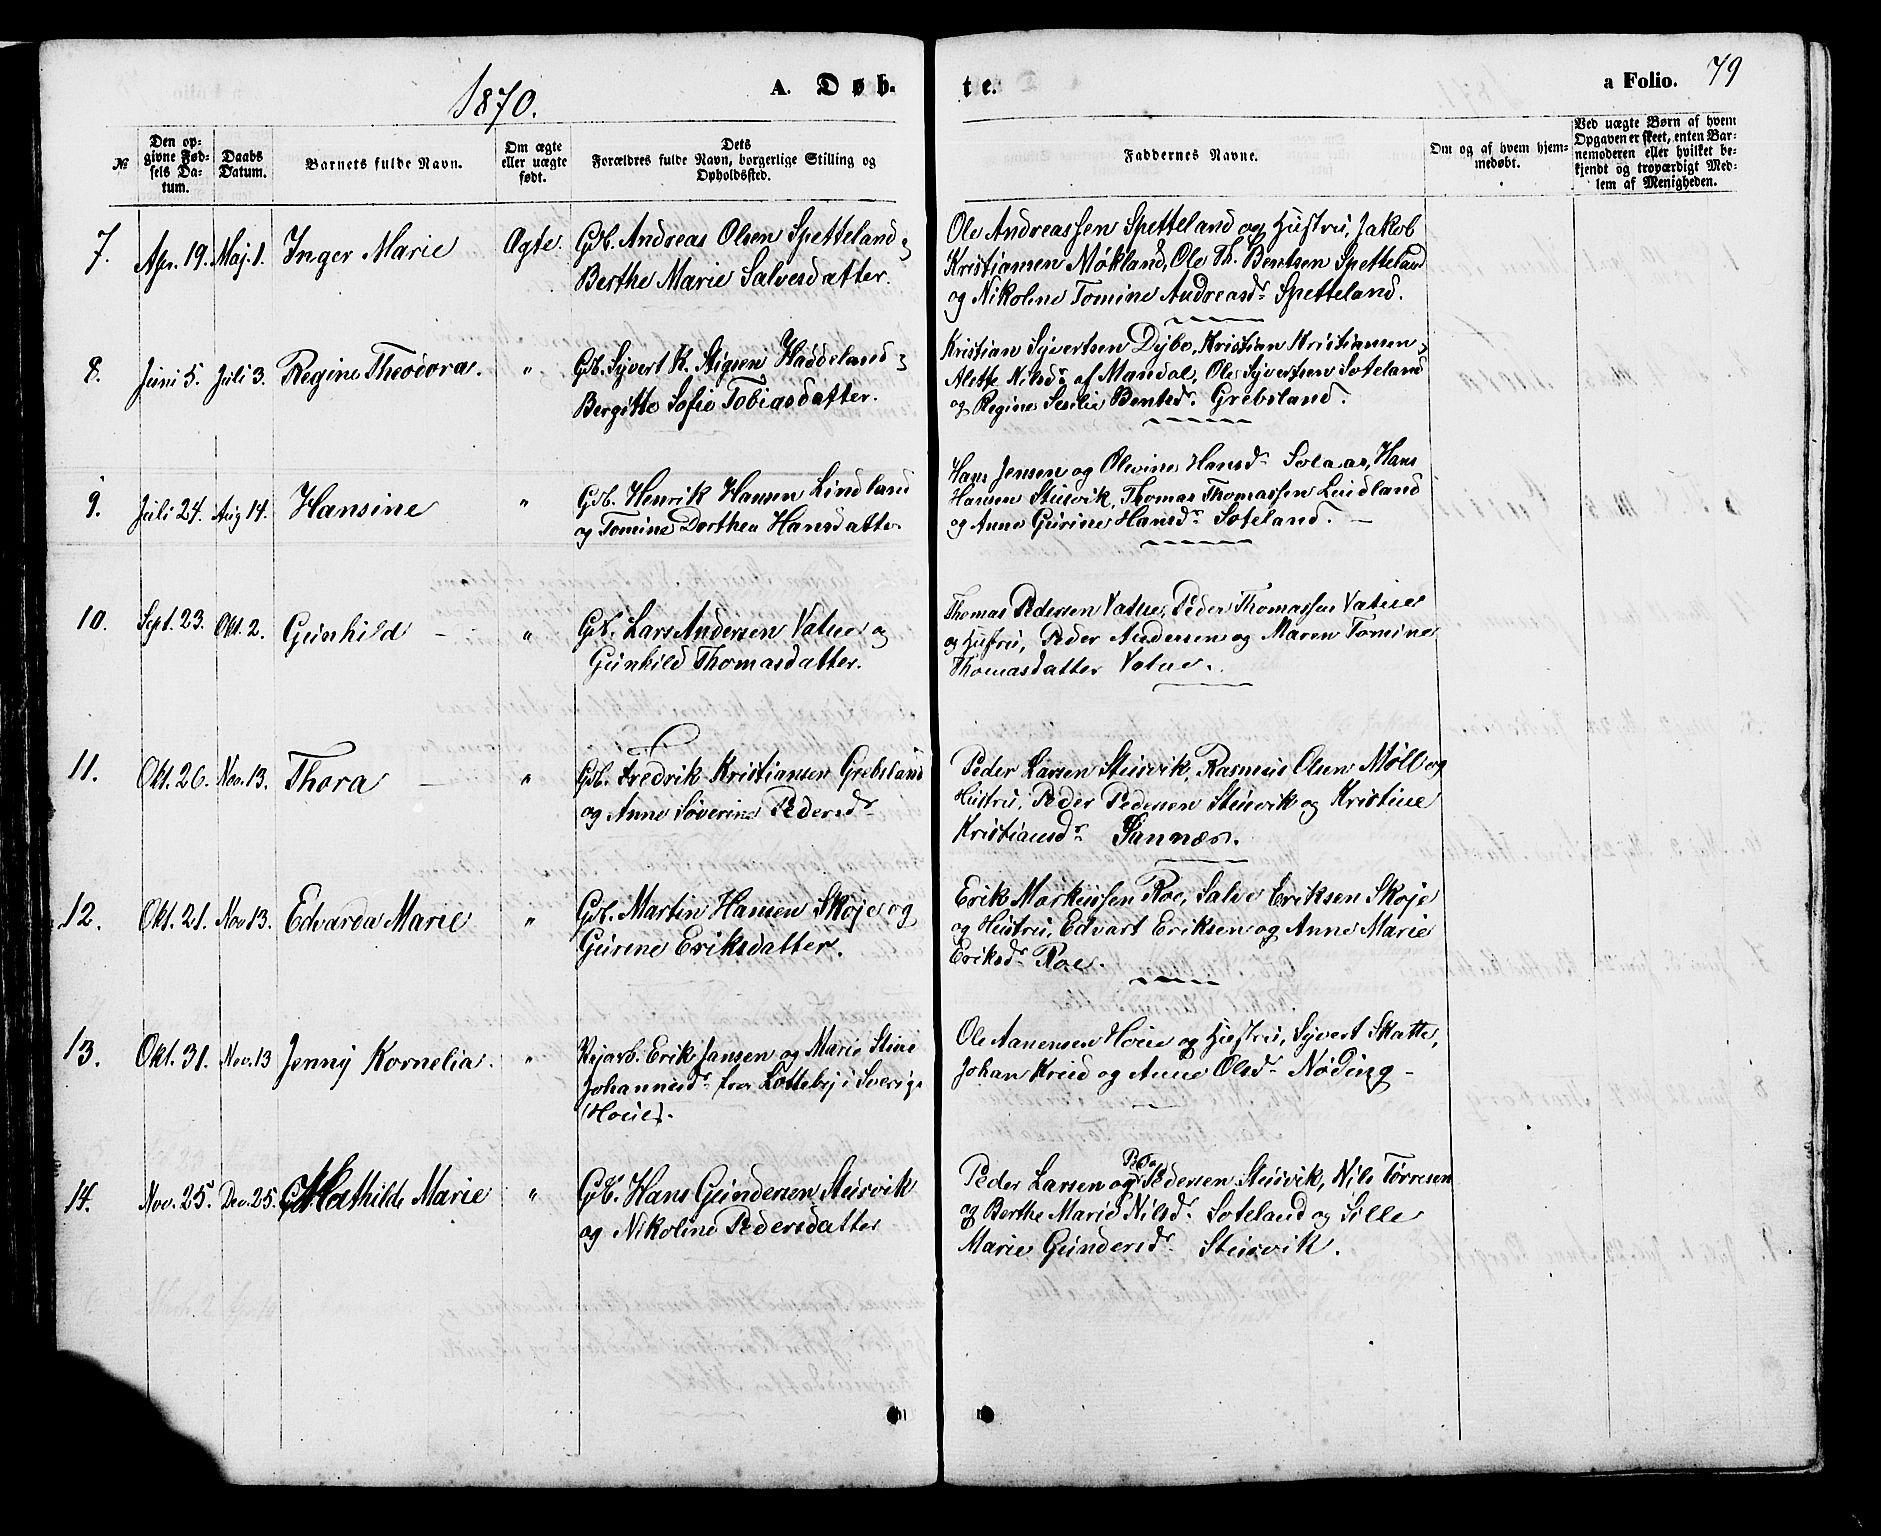 1870.
A. Døb-
te.
a Folio. 79
№
Den op-
givne Fød-
sels Da-
tum.
Daabs
Datum.
Barnets fulde Navn.
Om ægte
eller uægte
født.
Dets
Forældres fulde Navn, borgerlige Stilling og
Opholdssted.
Faddernes Navne.
Om og af hvem hjem-
medøbt.
Ved uægte Børn af hvem
Opgaven er skeet, enten Bar-
nemoderen eller hvilket be-
kjendt og troværdigt Med-
lem af Menigheden.
7. Apr. 19. Maj. 1. Inger Marie Ægte. Gb. Andreas Olsen Spetteland og
Berthe Marie Salvesdatter.
Ole Andreassen Spetteland og Hustru, Jakob
Kristiansen Møkland, Ole Th. Bentsen Spetteland
og Nikoline Tomine Andreasdr. Spetteland.
8. Juni 5. Juli 3. Regine Theodora. " Gb. Syvert K. Stigsen Haddeland og
Bergitte Sofie Tobiasdatter.
Kristian Syvertsen Dybo, Kristian Kristiansen og
Alette Nilsdr. af Mandal, Ole Syvertsen Soteland
og Regine Sesilie Bentsdr. Grebsland.
9. Juli 24. Aug 14. Hansine " Gb. Henrik Hansen Lindland
og Tomine Dorthea Hansdatter.
Hans Jensen og Olevine Hansdr. Solaas, Hans
Hansen Stusvik, Thomas Thomassen Lindland
og Anne Gurine Hansdr. Soteland. —
10. Sept. 23. Okt. 2. Gunhild — " Gb. Lars Andersen Vatne og
Gunhild Thomasdatter.
Thomas Pedersen Vatne, Peder Thomassen Vatne
og Hustru, Peder Andersen og Maren Tomine
Thomasdatter Vatne.
11. Okt. 26. Nov. 13. Thora — " Gb. Fredrik Kristiansen Grebsland
og Anne Severine Pedersdr.
Peder Larsen Stusvik, Rasmus Olsen Møll og
Hustru, Peder Pedersen Stusvik og Kristine
Kristiansdr. Sannæs.
12. Okt. 21. Nov 13. Edvarda Marie " Gb. Martin Hansen Skoje og
Gurene Eriksdatter.
Erik Markussen Roe, Salve Eriksen Skoje
og Hustru, Edvart Eriksen og Anne Marie
Eriksdr. Roe.
13. Okt. 31. Nov. 13 Jenny Kornelia. " Vejarb. Erik Jansen og Marie Stine
Johannesdr. fra Lotteby i Sverige
(Houe).
Ole Aanensen Houe og Hustru, Syvert Skatte,
Johan Krud og Anne Olsdr. Nøding —
14. Nov. 25. Dec. 25. Mathilde Marie " Gb. Hans Gundersen Stusvik
og Nikoline Pedersdatter
Peder Larsen og Peder Pedersen Stusvik, Nils Tørresen
og Berthe Marie Nilsdr. Soteland og Sille
Marie Gundersdr. Stusvik.